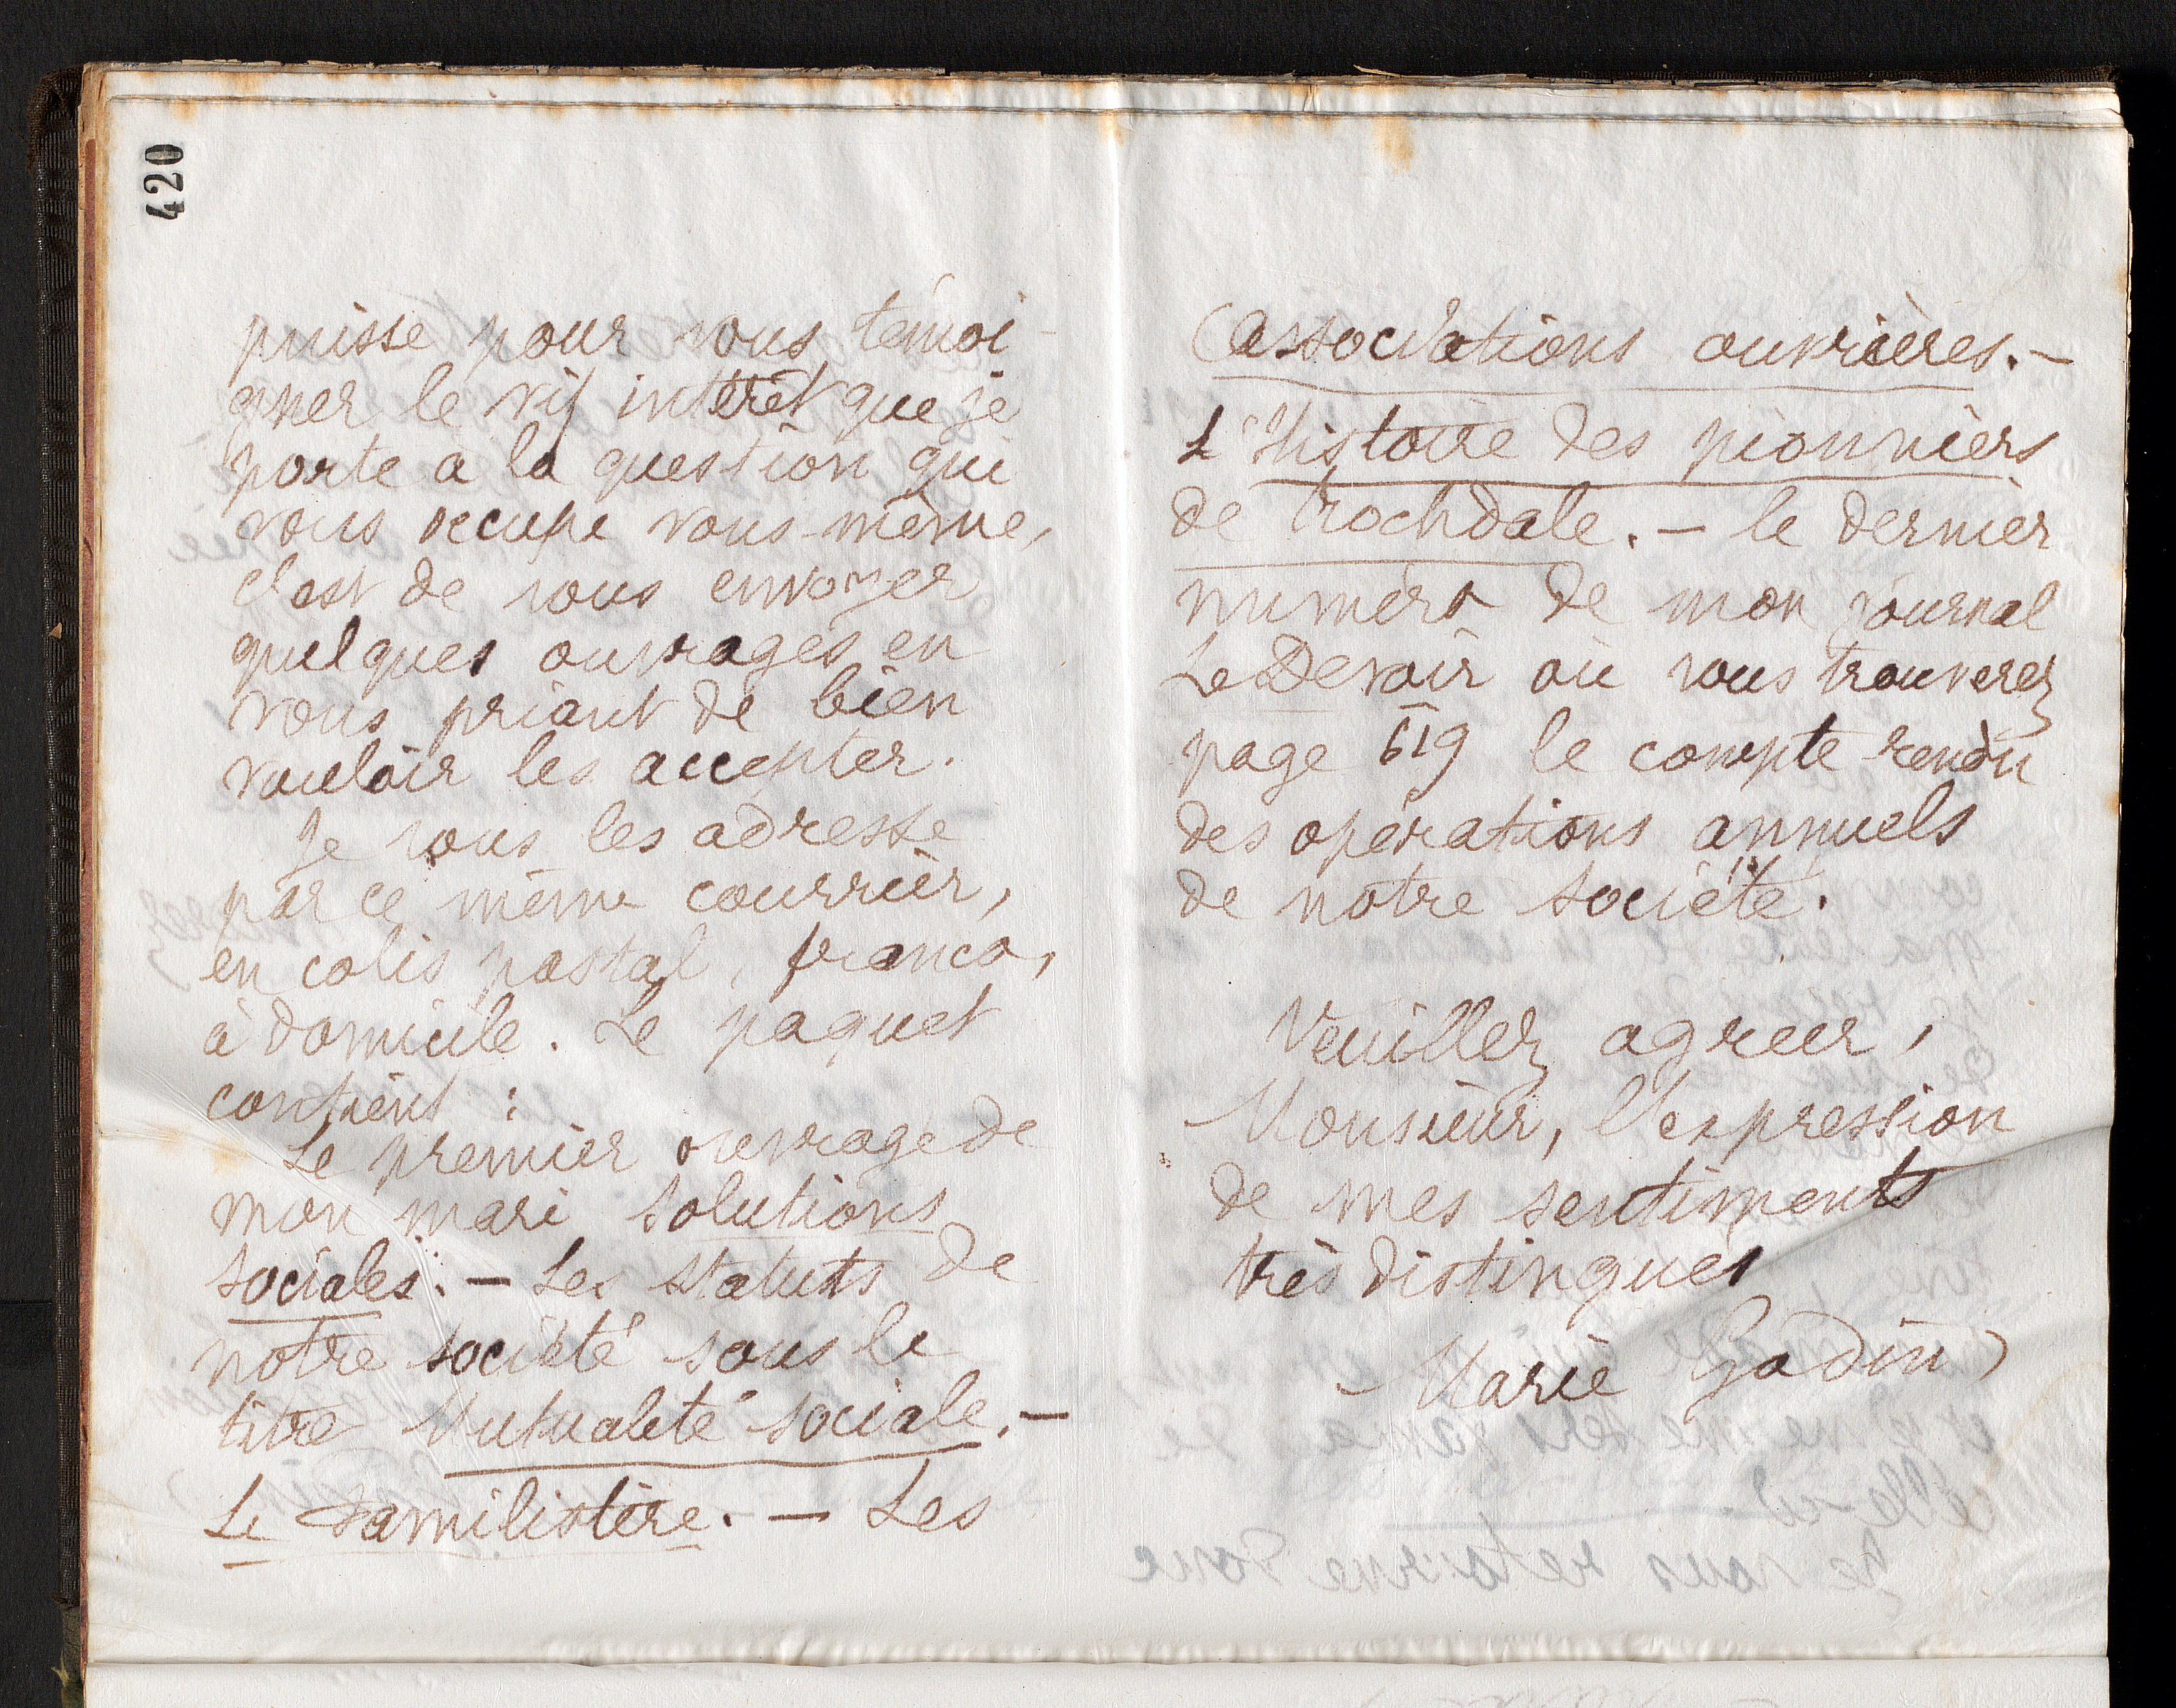 420
puisse pour vous témoi-
gner le vif intérêt que je
porte à la question qui
vous occupe vous-même,
c'est de vous envoyer
quelques ouvrages en
vous priant de bien
vouloir les accepter.
Je vous les adresse
par ce même courrier,
en colis postal, franco,
à domicile. Le paquet
contient :
Le premier ouvrage de
mon mari Solutions
sociales. — Les statuts de
notre société sous le
titre Mutualité sociale. —
Le Familistère. — Les
Associations ouvrières. —
L'Histoire des pionniers
de Rochdale. — le dernier
numéro de mon journal
Le Devoir où vous trouverez
page 619 le compte rendu
des opérations annuels
de notre société.
Veuillez agréer,
Monsieur, l'expression
de mes sentiments
très distingués
Marie Godin